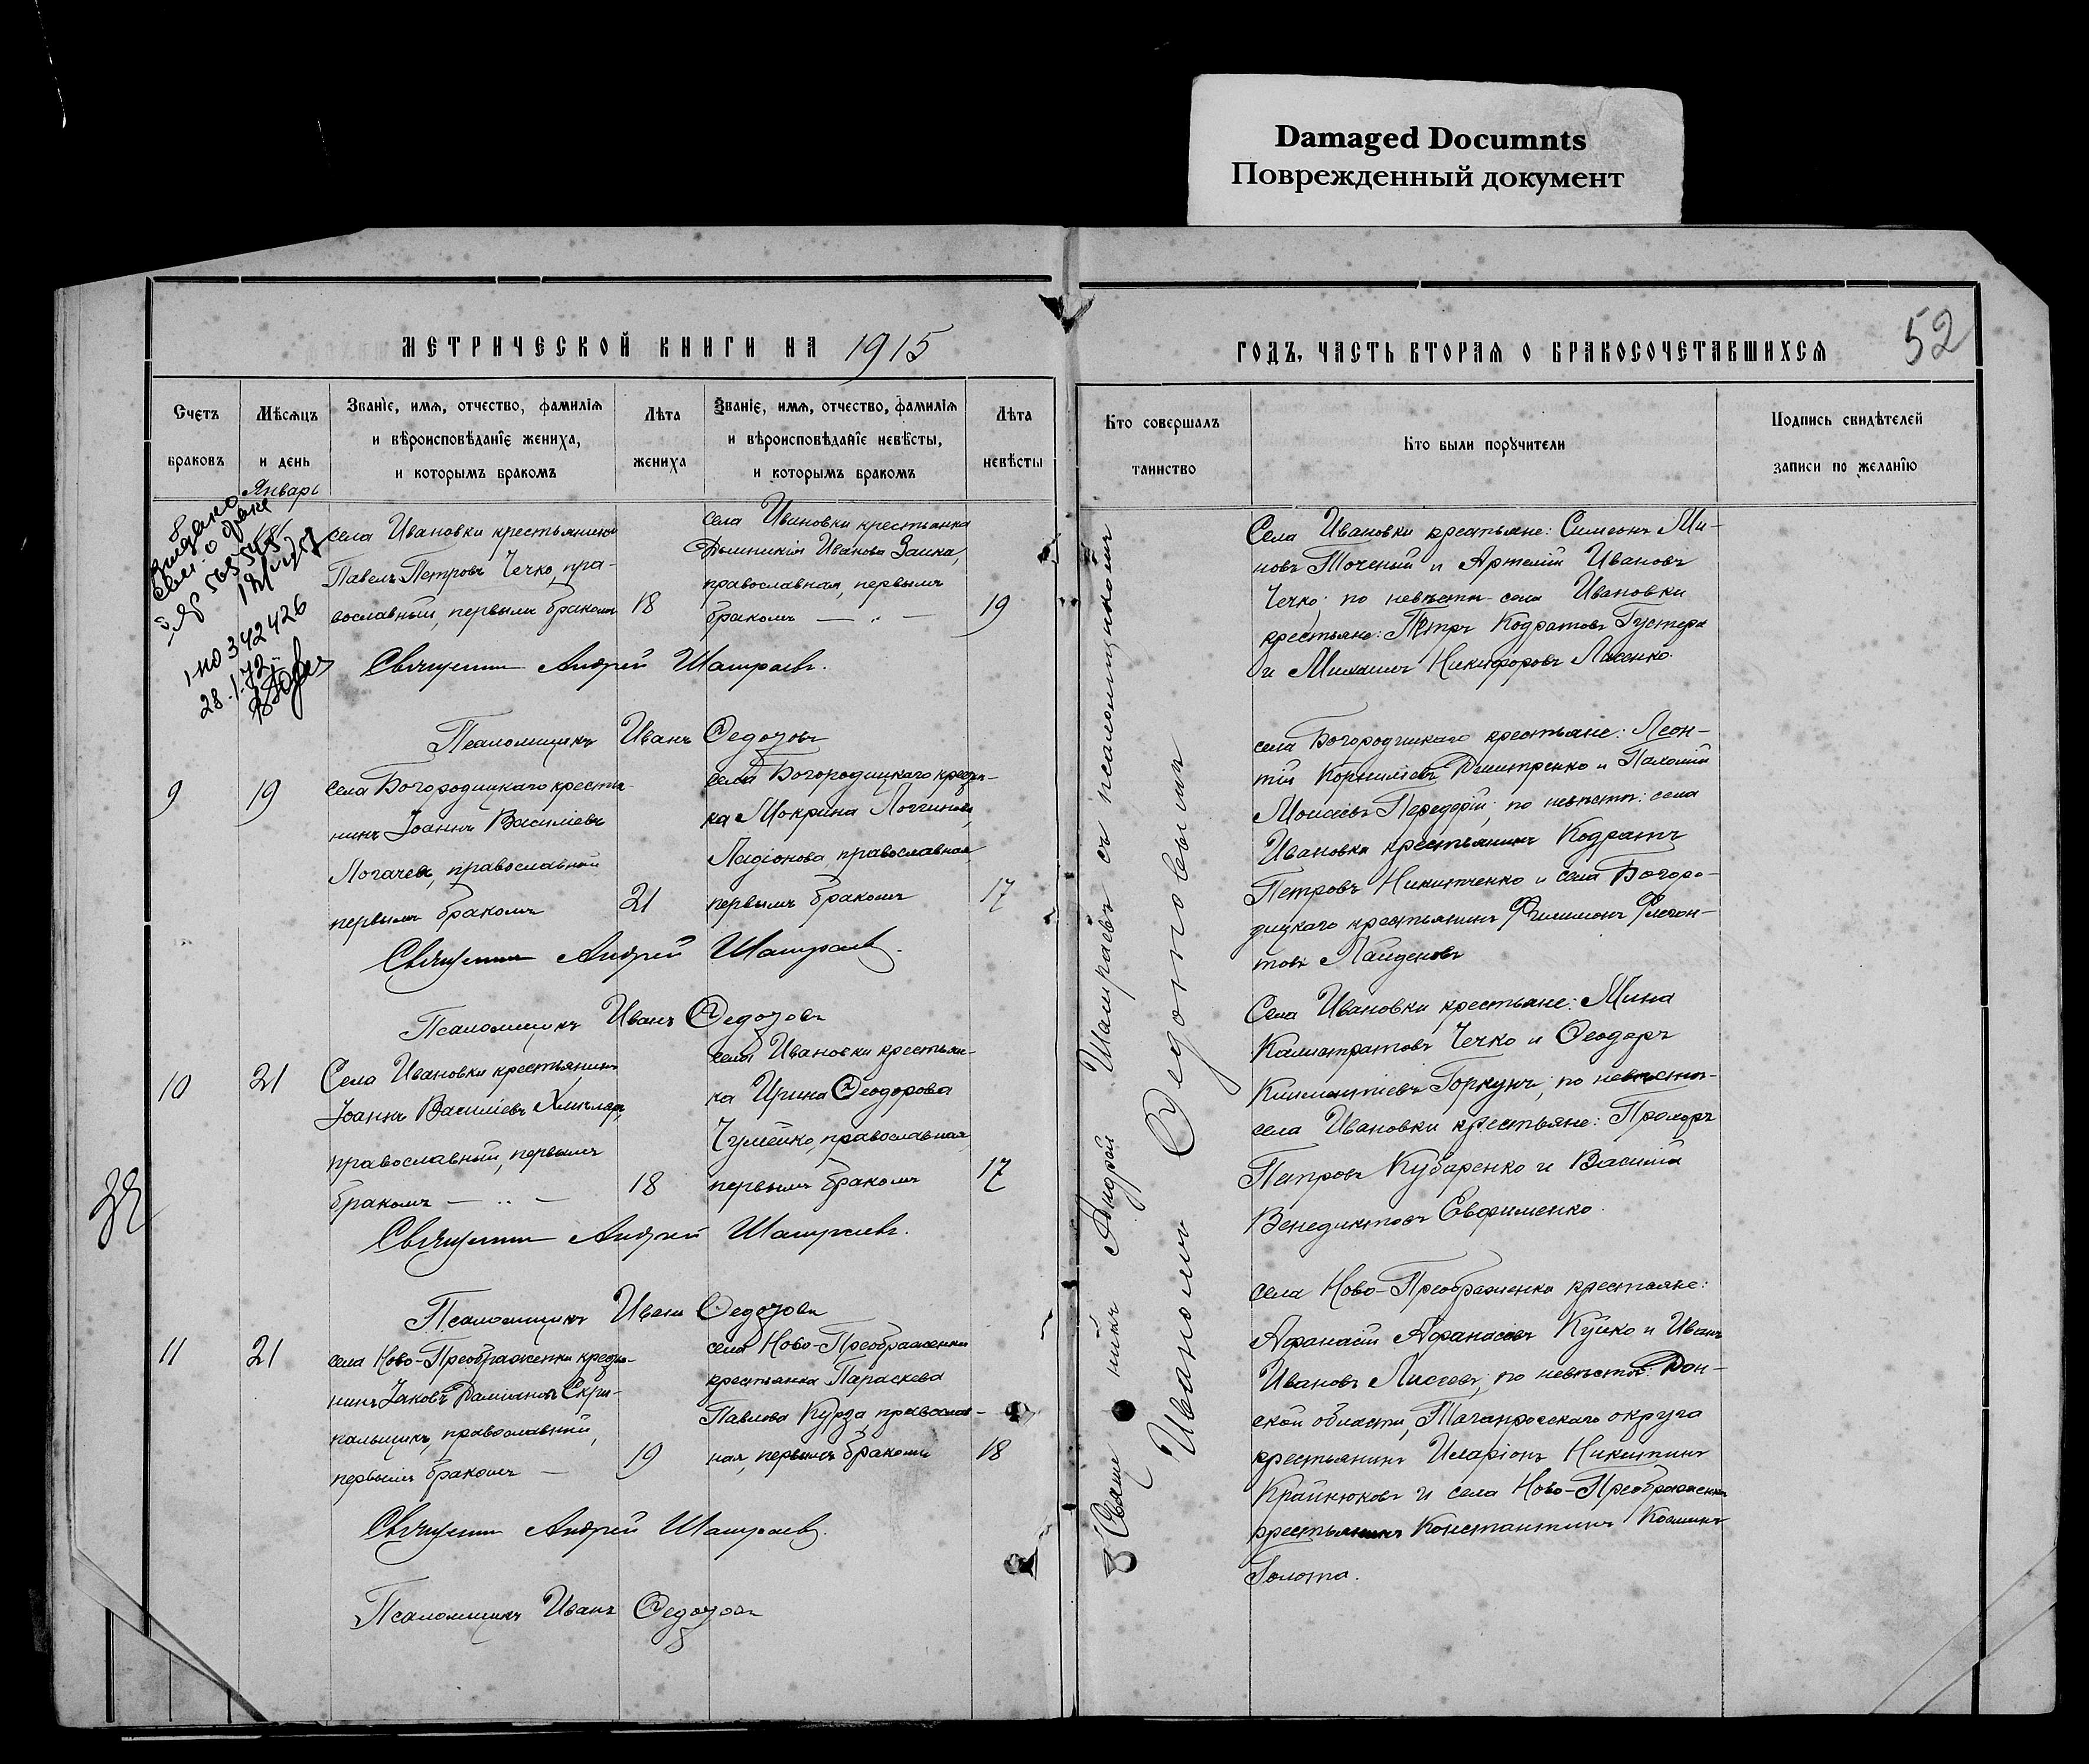 Damaged Documnts
Поврежденный документ
52
МЕТРИЧЕСКОЙ КНИГИ НА 1915
ГОДЪ, ЧАСТЬ ВТОРАЯ О БРАКОСОЧЕТАВШИХСЯ
Счетъ браковъ
Мѣсяцъ и день
Званіе, имя, отчество, фамилія и вѣроисповѣданіе жениха, и которымъ бракомъ
Лѣта жениха
Званіе, имя, отчество, фамилія и вѣроисповѣданіе невѣсты, и которымъ бракомъ
Лѣта невѣсты
Кто совершалъ таинство
Кто были поручители
Подпись свидѣтелей записи по желанію
Январь
8
Выдано
свид. о браке
1-НО 342426
28.1.72
села Ивановки крестьянинъ
Павелъ Петровъ Чечко, пра-
вославный, первымъ бракомъ
18
села Ивановки крестьянка
Иванова Заика,
православная, первымъ
бракомъ — „ —
19
Священникъ Андрей Шашраевъ.
Псаломщикъ Иванъ Ѳедоровъ
9
19
села Богородицкаго крестья-
нинъ Іоаннъ Василіевъ
Логачевъ, православный
первымъ бракомъ
21
села Богородицкаго крестьян-
ка Мокрина Логгинова
Ладіонова православная,
первымъ бракомъ
17
Священникъ Андрей Шашраевъ.
Псаломщикъ Иванъ Ѳедоровъ
10
21
Села Ивановки крестьянинъ
Іоаннъ Василіевъ
православный, первымъ
бракомъ — „ —
18
села Ивановки крестьян-
ка Ирина Ѳеодорова
Чумейко, православная,
первымъ бракомъ
17
38
Священникъ Андрей Шашраевъ.
Псаломщикъ Иванъ Ѳедоровъ
11
21
села Ново-Преображенки крестья-
нинъ Іаковъ Даміановъ Скри-
пальщикъ, православный,
первымъ бракомъ —
19
села Ново-Преображенки
крестьянка Параскева
Павлова Курза, православ-
ная, первымъ бракомъ
18
Священникъ Андрей Шашраевъ.
Псаломщикъ Иванъ Ѳедоровъ
Священникъ Андрей Шашраевъ съ псаломщикомъ
Иваномъ Ѳедоровымъ
Села Ивановки крестьяне: Симеонъ Ми-
новъ Точеный и Артемій Ивановъ
Чечко; по невѣстѣ села Ивановки
крестьяне: Петръ Кодратовъ Густера
и Михаилъ Никифоровъ Лысенко.
села Богородицкаго крестьяне: Леон-
тій Корниліевъ Дмитренко и Пахомій
Моисеевъ Передрій; по невѣстѣ: села
Ивановки крестьянинъ Кодратъ
Петровъ Никитченко и села Богоро-
дицкаго крестьянинъ Филимонъ Флегон-
товъ
Села Ивановки крестьяне: Мина
Калистратовъ Чечко и Ѳеодоръ
Климентіевъ Горкунъ; по невѣстѣ-
села Ивановки крестьяне: Прохоръ
Петровъ Кубаренко и Василій
Венедиктовъ Евфименко.
села Ново-Преображенки крестьяне:
Афанасій Афанасіевъ Куйко и Иванъ
Ивановъ Лисеевъ; по невѣстѣ: Дон-
ской области, Таганрогскаго округа
крестьянинъ Иларіонъ Никитинъ
Крайнюковъ и села Ново-Преображенки
крестьянинъ Константинъ Космин
Голота.